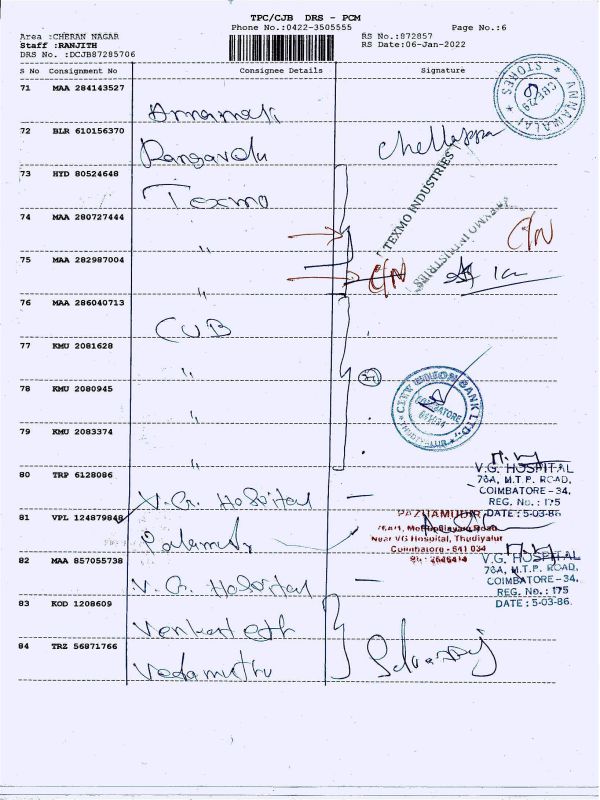 TPC/CJB DRS - PCM
Phone No.:0422-3505555 Page No.:6
Area :CHERAN NAGAR RS No.:872857
Staff :RANJITH RS Date:06-Jan-2022
DRS No. :DCJB87285706
S No Consignment No Consignee Details Signature
71 MAA 284143527
STORES
72 BLR 610156370
Rangavelu Chellappa
73 HYD 80524648
Texmo
TEXMO INDUSTRIES
TEXMO INDUSTRIES
74 MAA 280727444
" C/N
75 MAA 282987004
" C/N
76 MAA 286040713
CUB
77 KMU 2081628
"
78 KMU 2080945
"
CITY UNION BANK LTD.
COIMBATORE
641034
79 KMU 2083374
"
80 TRP 6128086
V.G. Hospital
V.G. HOSPITAL
78A, M.T.P. ROAD,
COIMBATORE - 34,
REG. No. : 175
DATE : 5-03-86
81 VPL 124879848
PAZHAMUDIR
Mettupalayam Road
Near VG Hospital, Thudiyalur
Coimbatore - 641 034
82 MAA 857055738
V.G. Hospital
V.G. HOSPITAL
78A, M.T.P. ROAD,
COIMBATORE - 34.
REG. No. : 175
DATE : 5-03-86
83 KOD 1208609
Venkatesh
84 TRZ 56871766
Vedamuthu Selvaraj